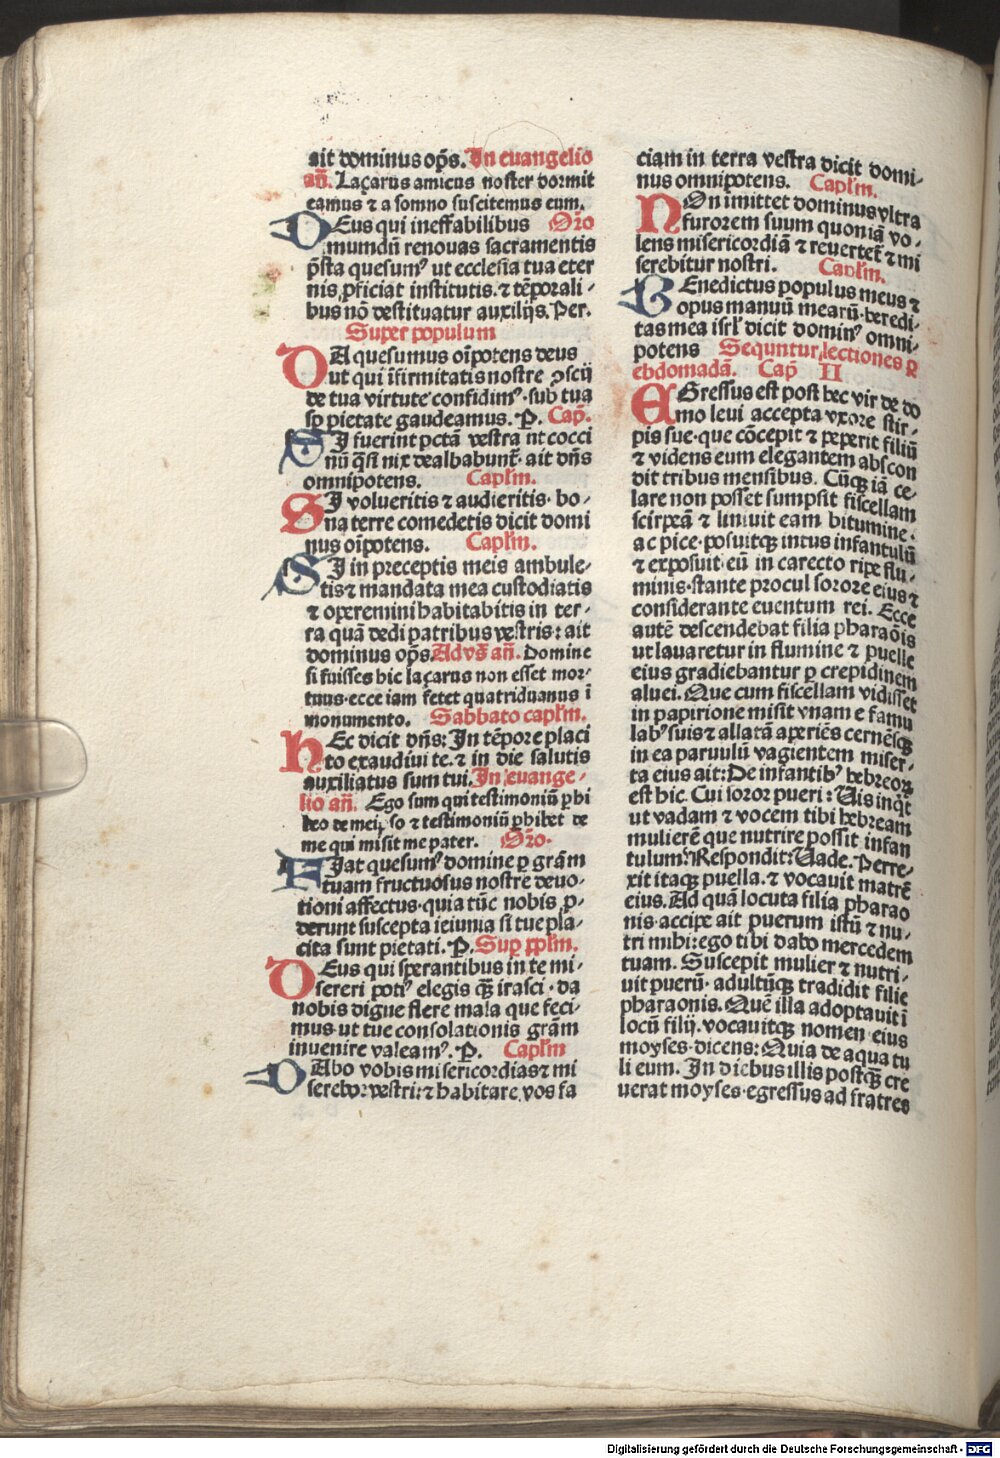 ait dominus op̃s. In euangelio
añ. Laçarus amicus noster dormit
eamus ⁊ a somno suscitemus eum.
DEus qui ineffabilibus Or̃o
mundũ renouas sacramentis
p̃sta quesumꝰ ut ecclesia tua eter
nis ꝓficiat institutis. ⁊ tẽporali-
bus nõ destituatur auxilijs. Per.
Super populum
DA quesumus oĩpotens deus
ut qui ĩfirmitatis nostre ꝯscij
de tua virtute confidimꝰ. sub tua
sp̱ pietate gaudeamus. P. Cap̃.
SI fuerint pctã vestra ut cocci
nũ q̃si nix dealbabunt̃. ait dñs
omnipotens. Caplm̃.
SI volueritis ⁊ audieritis. bo-
na terre comedetis dicit domi
nus oĩpotens. Caplm̃.
SI in preceptis meis ambule-
tis ⁊ mandata mea custodiatis
⁊ operemini habitabitis in ter-
ra quã dedi patribus vestris: ait
dominus op̃s. Advs̃ añ. Domine
si fuisses hic laçarus non esset mor-
tuus. ecce iam fetet quatriduanus ĩ
monumento. Sabbato caplm̃.
hEc dicit dñs: In tẽpore placi
to exaudiui te. ⁊ in die salutis
auxiliatus sum tui. In euange-
lio añ. Ego sum qui testimoniũ ꝑhi
beo de meipso ⁊ testimoniũ ꝑhibet de
me qui misit me pater. Or̃o.
FIat quesumꝰ domine ꝑ grãm
tuam fructuosus nostre deuo-
tioni affectus. quia tũc nobis ꝓ-
derunt suscepta ieiunia si tue pla-
cita sunt pietati. P. Sup̱ pplm̃.
DEus qui sperantibus in te mi-
sereri potiꝰ elegis q̃ irasci. da
nobis digne flere mala que feci-
mus. ut tue consolationis grãm
inuenire valeamꝰ. P. Caplm̃
DAbo vobis misericordias ⁊ mi
serebor vestri: ⁊ habitare vos fa
ciam in terra vestra dicit domi-
nus omnipotens. Caplm̃.
NOn imittet dominus vltra
furorem suum quoniã vo-
lens misericordiã ⁊ reuertet̃ ⁊ mi
serebitur nostri. Caplm̃.
BEnedictus populus meus ⁊
opus manuũ mearũ. heredi-
tas mea isrl̃ dicit dominꝰ omni-
potens Sequntur lectiones ꝑ
ebdomadã. Cap̃ II
EGressus est post hec vir de do
mo leui accepta vxore stir-
pis sue. que cõcepit ⁊ peperit filiũ
⁊ videns eum elegantem abscon
dit tribus mensibus. Cũqꝫ iã ce-
lare non posset sumpsit fiscellam
scirpeã ⁊ liniuit eam bitumine.
ac pice. posuitqꝫ intus infantulũ
⁊ exposuit eũ in carecto ripe flu-
minis. stante procul sorore eius ⁊
considerante euentum rei. Ecce
autẽ descendebat filia pharaõis
ut lauaretur in flumine ⁊ puelle
eius gradiebantur ꝑ crepidinem
aluei. Que cum fiscellam vidisset
in papirione misit vnam e famu
labꝰ suis ⁊ allatã aperiẽs cernẽsqꝫ
in ea paruulũ vagientem miser-
ta eius ait: De infantibꝰ hebreoꝝ
est hic. Cui soror pueri: Uis inq̃t
ut vadam ⁊ vocem tibi hebream
mulierẽ que nutrire possit infan
tulum? Respondit: Uade. Perre-
xit itaqꝫ puella. ⁊ vocauit matrẽ
eius. Ad quã locuta filia pharao
nis. accipe ait puerum istũ ⁊ nu-
tri mihi: ego tibi dabo mercedem
tuam. Suscepit mulier ⁊ nutri-
uit puerũ. adultũqꝫ tradidit filie
pharaonis. Quẽ illa adoptauit ĩ
locũ filij. vocauitqꝫ nomen eius
moyses. dicens: Quia de aqua tu
li eum. In diebus illis postq̃ cre
uerat moyses. egressus ad fratres
Digitalisierung gefördert durch die Deutsche Forschungsgemeinschaft - DFG